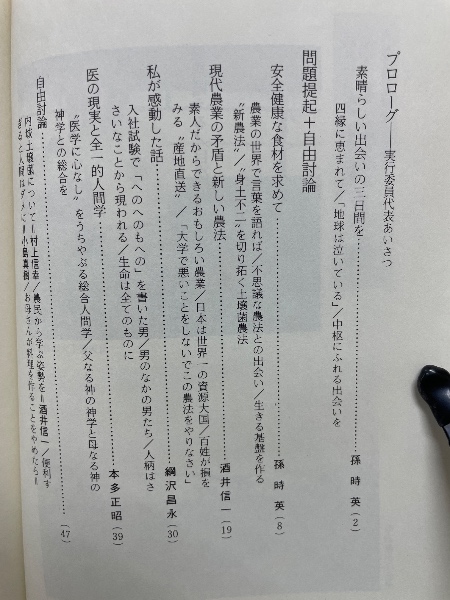 プロローグ――実行委員代表あいさつ
素晴らしい出会いの三日間を………孫 時 英（2）
四縁に恵まれて／「地球は泣いている」／中枢にふれる出会いを
問題提起＋自由討論
安全健康な食材を求めて………孫 時 英（8）
農業の世界で言葉を語れば／不思議な農法との出会い／生きる基盤を作る
〝新農法〟／〝身土不二〟を切り拓く土壌菌農法
現代農業の矛盾と新しい農法………酒井信一（19）
素人だからできるおもしろい農業／日本は世界一の資源大国／百姓が損を
みる〝産地直送〟／「大学で悪いことをしないでこの農法をやりなさい」
私が感動した話………網沢昌永（30）
入社試験で「へのへのもへの」を書いた男／男のなかの男たち／人柄はさ
さいなことから現われる／生命は全てのものに
医の現実と全一的人間学………本多正昭（39）
〝医学に心なし〟をうちやぶる総合人間学／父なる神の神学と母なる神の
神学との総合を
自由討論………（47）
内城土壌菌について＝村上信幸／農民から学ぶ姿勢を＝酒井信一／便利す
小島直樹／お母さんが料理を作ることをやめたら＝